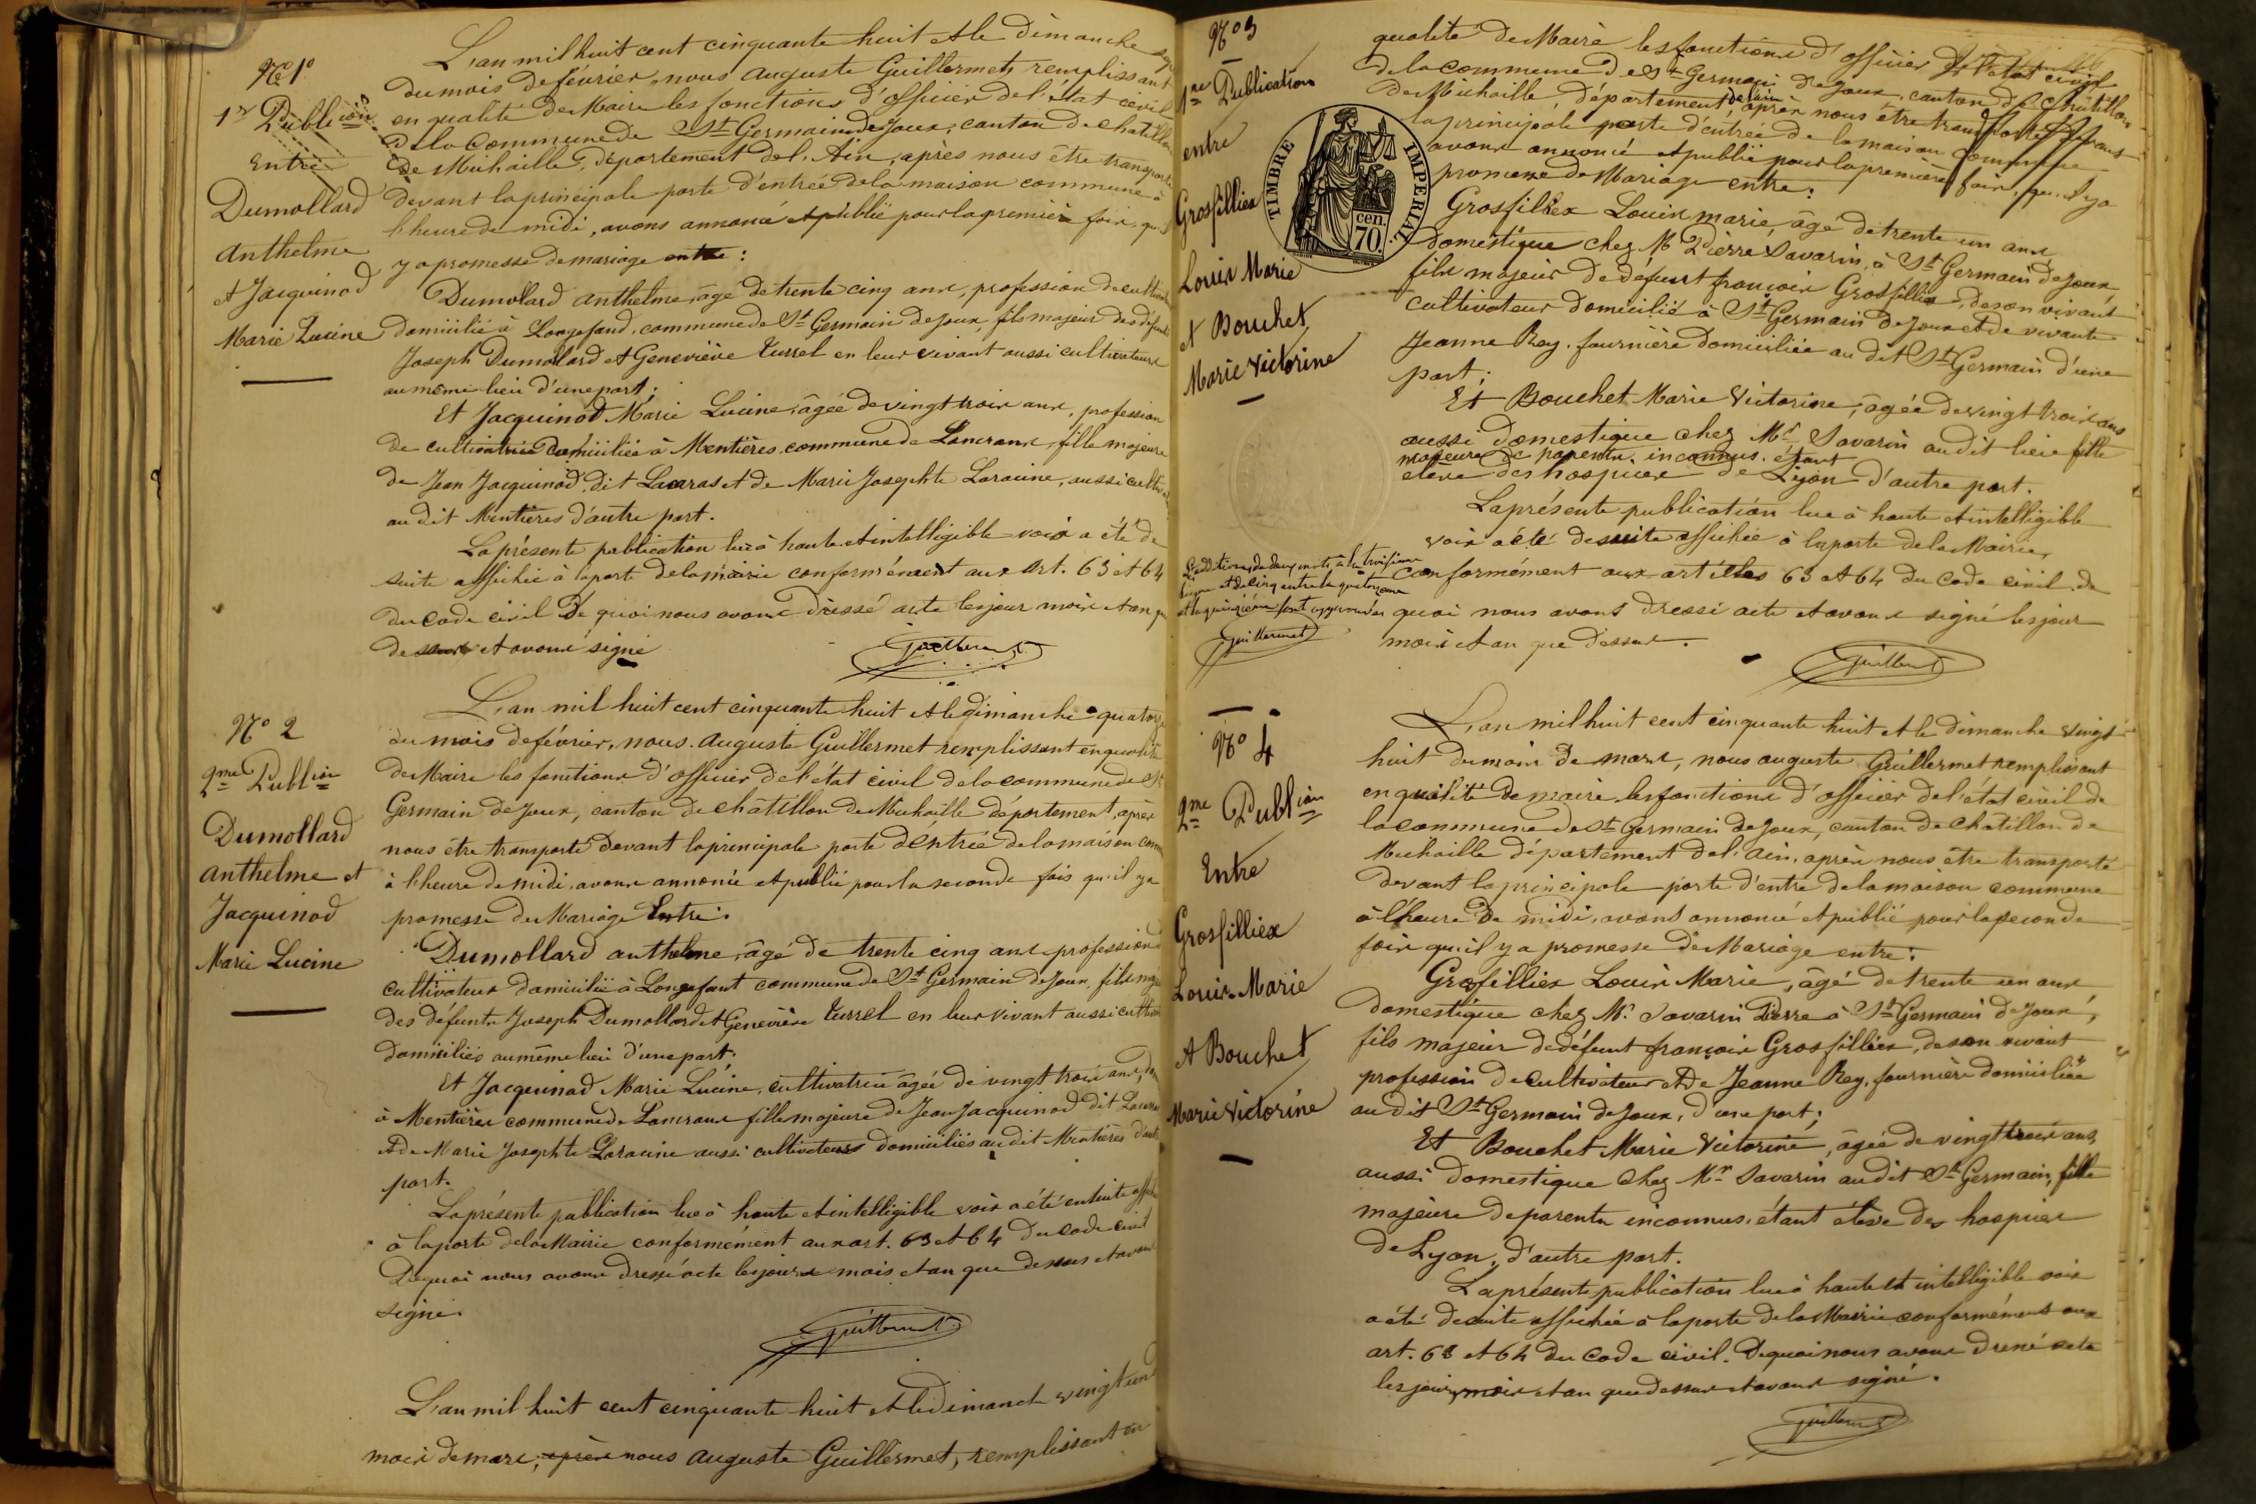 No 1o
1re Publicion
Entre
Dumollard
Anthelme
et Jacquinod
Marie Lucine
L'an mil huit cent cinquante huit et le dimanche
du mois de février, nous Auguste Guillermet, remplissant
en qualité de Maire les fonctions d'officier de l'état civil
de la Commune de St Germain de Joux, canton de Chatillon
de Michaille, département de l'Ain, après nous être transporté
devant la principale porte d'entrée de la maison commune à
l'heure de midi, avons annoncé et publié pour la première fois, qu'il
y a promesse de mariage entre :
Dumollard Anthelme, âgé de trente cinq ans, profession de cultivateur
domicilié à Longefand, commune de St Germain de Joux, fils majeur des défunts
Joseph Dumollard et Geneviève Turrel en leur vivant aussi cultivateurs
au même lieu d'une part ;
Et Jacquinod Marie Lucine, âgée de vingt trois ans, profession
de cultivatrice domiciliée à Mentières commune de Lancrans, fille majeure
de Jean Jacquinod, dit Lacras et de Marie Josephte Laracine, aussi cultivateurs
au dit Mentières d'autre part.
La présente publication lue à haute et intelligible voix a été de
suite affichée à la porte de la mairie conformément aux Art. 63 et 64
du Code civil De quoi nous avons dressé acte les jour mois et an que
dessus et avons signé
Guillermet
No 2
2me Publion
Dumollard
Anthelme et
Jacquinod
Marie Lucine
L'an mil huit cent cinquante huit et le dimanche quatorze
du mois de février, nous Auguste Guillermet remplissant en qualité
de Maire les fonctions d'officier de l'état civil de la commune de St
Germain de Joux, canton de Châtillon de Michaille département, après
nous être transporté devant la principale porte d'entrée de la maison commune
à l'heure de midi, avons annoncé et publié pour la seconde fois qu'il y a
promesse de Mariage Entre :
Dumollard anthelme, âgé de trente cinq ans profession
cultivateur domicilié à Longefant commune de St Germain de Joux, fils majeur
des défunts Joseph Dumollard et Geneviève Turrel en leur vivant aussi cultivateurs
domiciliés au même lieu d'une part ;
Et Jacquinod Marie Lucine, cultivatrice âgée de vingt trois ans,
à Mentières commune de Lancrans fille majeure de Jean Jacquinod dit Lacras
et de Marie Josephte Laracine aussi cultivateurs domiciliés au dit Mentières d'autre
part.
La présente publication lue à haute et intelligible voix a été ensuite affichée
à la porte de la Mairie conformément aux art. 63 et 64 du Code civil
De quoi nous avons dressé acte les jours mois et an que dessus et avons
signé.
Guillermet
L'an mil huit cent cinquante huit et le dimanche vingt un
mois de mars, après nous Auguste Guillermet, remplissant en
No 3
1re Publication
entre
Grosfilliex
Louis Marie
et Bouchet
Marie Victorine
TIMBRE IMPERIAL
cen.
70.
qualité de Maire les fonctions d'officier de l'état civil
de la commune de St Germain de Joux, canton de Chatillon
de Michaille, département de l'ain après nous être transporté devant
la principale porte d'entrée de la maison commune
avons annoncé et publié pour la première fois, qu'il y a
promesse de Mariage entre :
Grosfilliex Louis marie, âgé de trente un ans
domestique chez Mr Pierre Savarin, à St Germain de Joux,
fils majeur de défunt françois Grosfilliex, de son vivant
cultivateur domicilié à St Germain de Joux et de vivante
Jeanne Rey, fournière domiciliée au dit St Germain d'une
part ;
Et Bouchet Marie Victorine, âgée de vingt trois ans
aussi domestique chez Mr Savarin au dit lieu fille
majeure de parents inconnus, étant
élève des hospices de Lyon d'autre part.
La présente publication lue à haute et intelligible
voix a été de suite affichée à la porte de la Mairie,
conformément aux articles 63 et 64 du Code civil, de
quoi nous avons dressé acte et avons signé les jour
mois et an que dessus.
Guillermet
L'addition de deux mots à la troisième
ligne et de cinq entre la quatorzième
et la quinzième sont approuvées
Guillermet
No 4
2me Publion
Entre
Grosfilliex
Louis Marie
et Bouchet
Marie Victorine
L'an mil huit cent cinquante huit et le dimanche vingt
huit du mois de mars, nous auguste Guillermet remplissant
en qualité de maire les fonctions d'officier de l'état civil de
la commune de St Germain de Joux, canton de Chatillon de
Michaille département de l'ain, après nous être transporté
devant la principale porte d'entré de la maison commune
à l'heure de midi, avons annoncé et publié pour la seconde
fois qu'il y a promesse de Mariage entre :
Grosfilliex Louis Marie, âgé de trente un ans
domestique chez Mr Savarin Pierre à St Germain de Joux,
fils majeur de défunt françois Grosfilliex, de son vivant
profession de cultivateur et de Jeanne Rey, fournière domiciliée
au dit St Germain de Joux, d'une part ;
Et Bouchet Marie Victorine, âgée de vingt trois ans,
aussi domestique chez Mr Savarin au dit St Germain, fille
majeure de parents inconnus, étant élève des hospices
de Lyon, d'autre part.
La présente publication lue à haute et intelligible voix
a été de suite affichée à la porte de la Mairie conformément aux
art. 63 et 64 du Code civil. De quoi nous avons dressé acte
les jour, mois et an que dessus et avons signé.
Guillermet